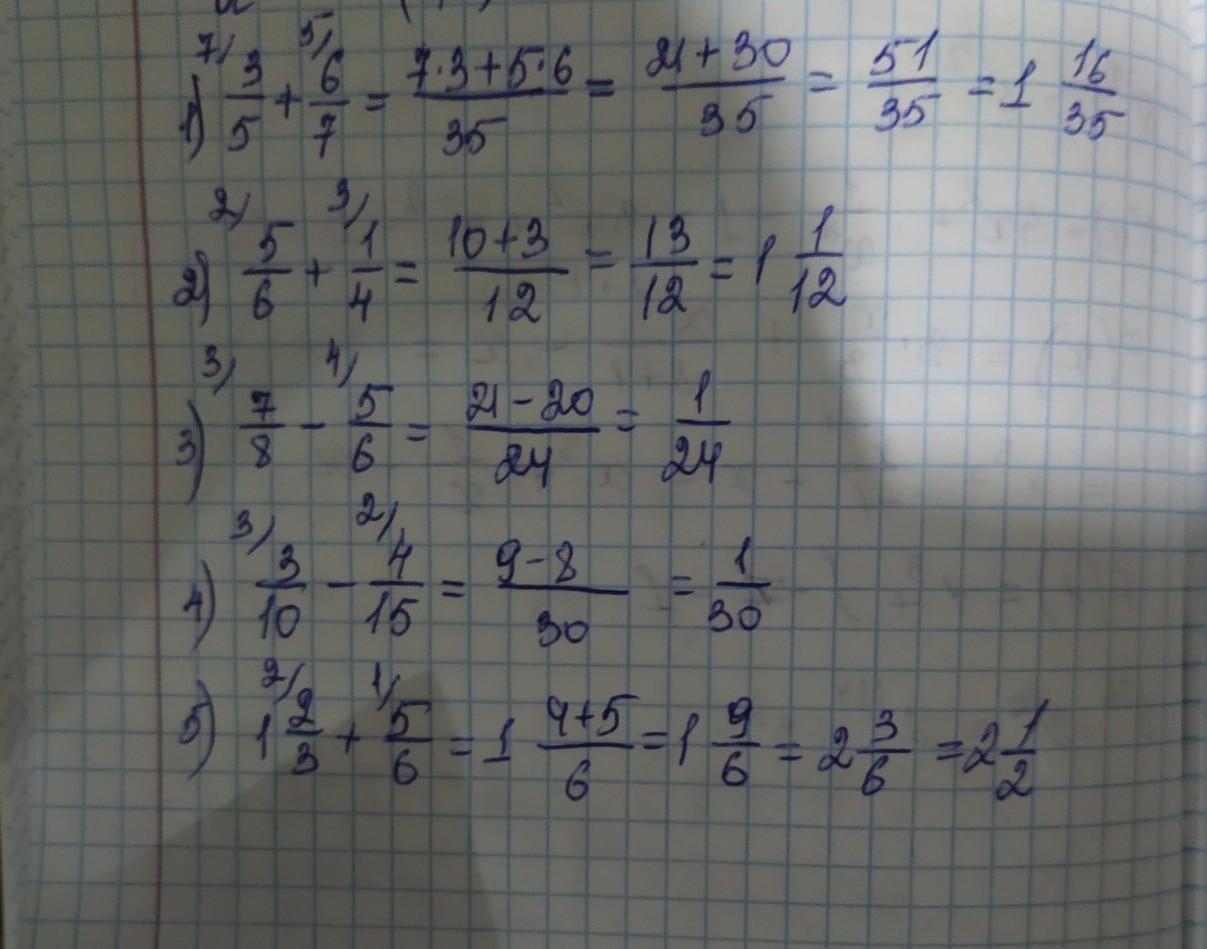 1) 7/ 3/5 + 5/ 6/7 = (7·3+5·6)/35 = (21+30)/35 = 51/35 = 1 16/35
2) 2/ 5/6 + 3/ 1/4 = (10+3)/12 = 13/12 = 1 1/12
3) 3/ 7/8 − 4/ 5/6 = (21−20)/24 = 1/24
4) 3/ 3/10 − 2/ 4/15 = (9−8)/30 = 1/30
5) 1 2/ 2/3 + 1/ 5/6 = 1 (4+5)/6 = 1 9/6 = 2 3/6 = 2 1/2